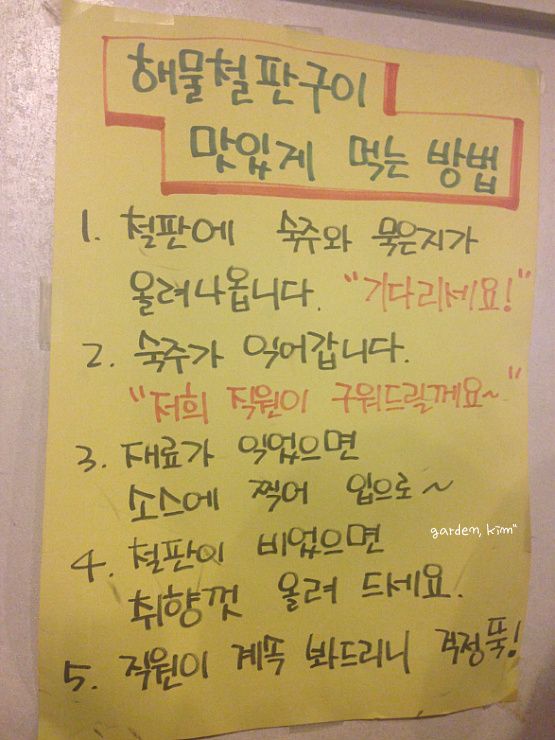 해물철판구이
맛있게 먹는 방법
1. 철판에 숙주와 묵은지가
올려나옵니다. "기다리세요!"
2. 숙주가 익어갑니다.
"저희 직원이 구워드릴께요~"
3. 재료가 익었으면
소스에 찍어 입으로~
garden, kim"
4. 철판이 비었으면
취향껏 올려 드세요.
5. 직원이 계속 봐드리니 걱정뚝!